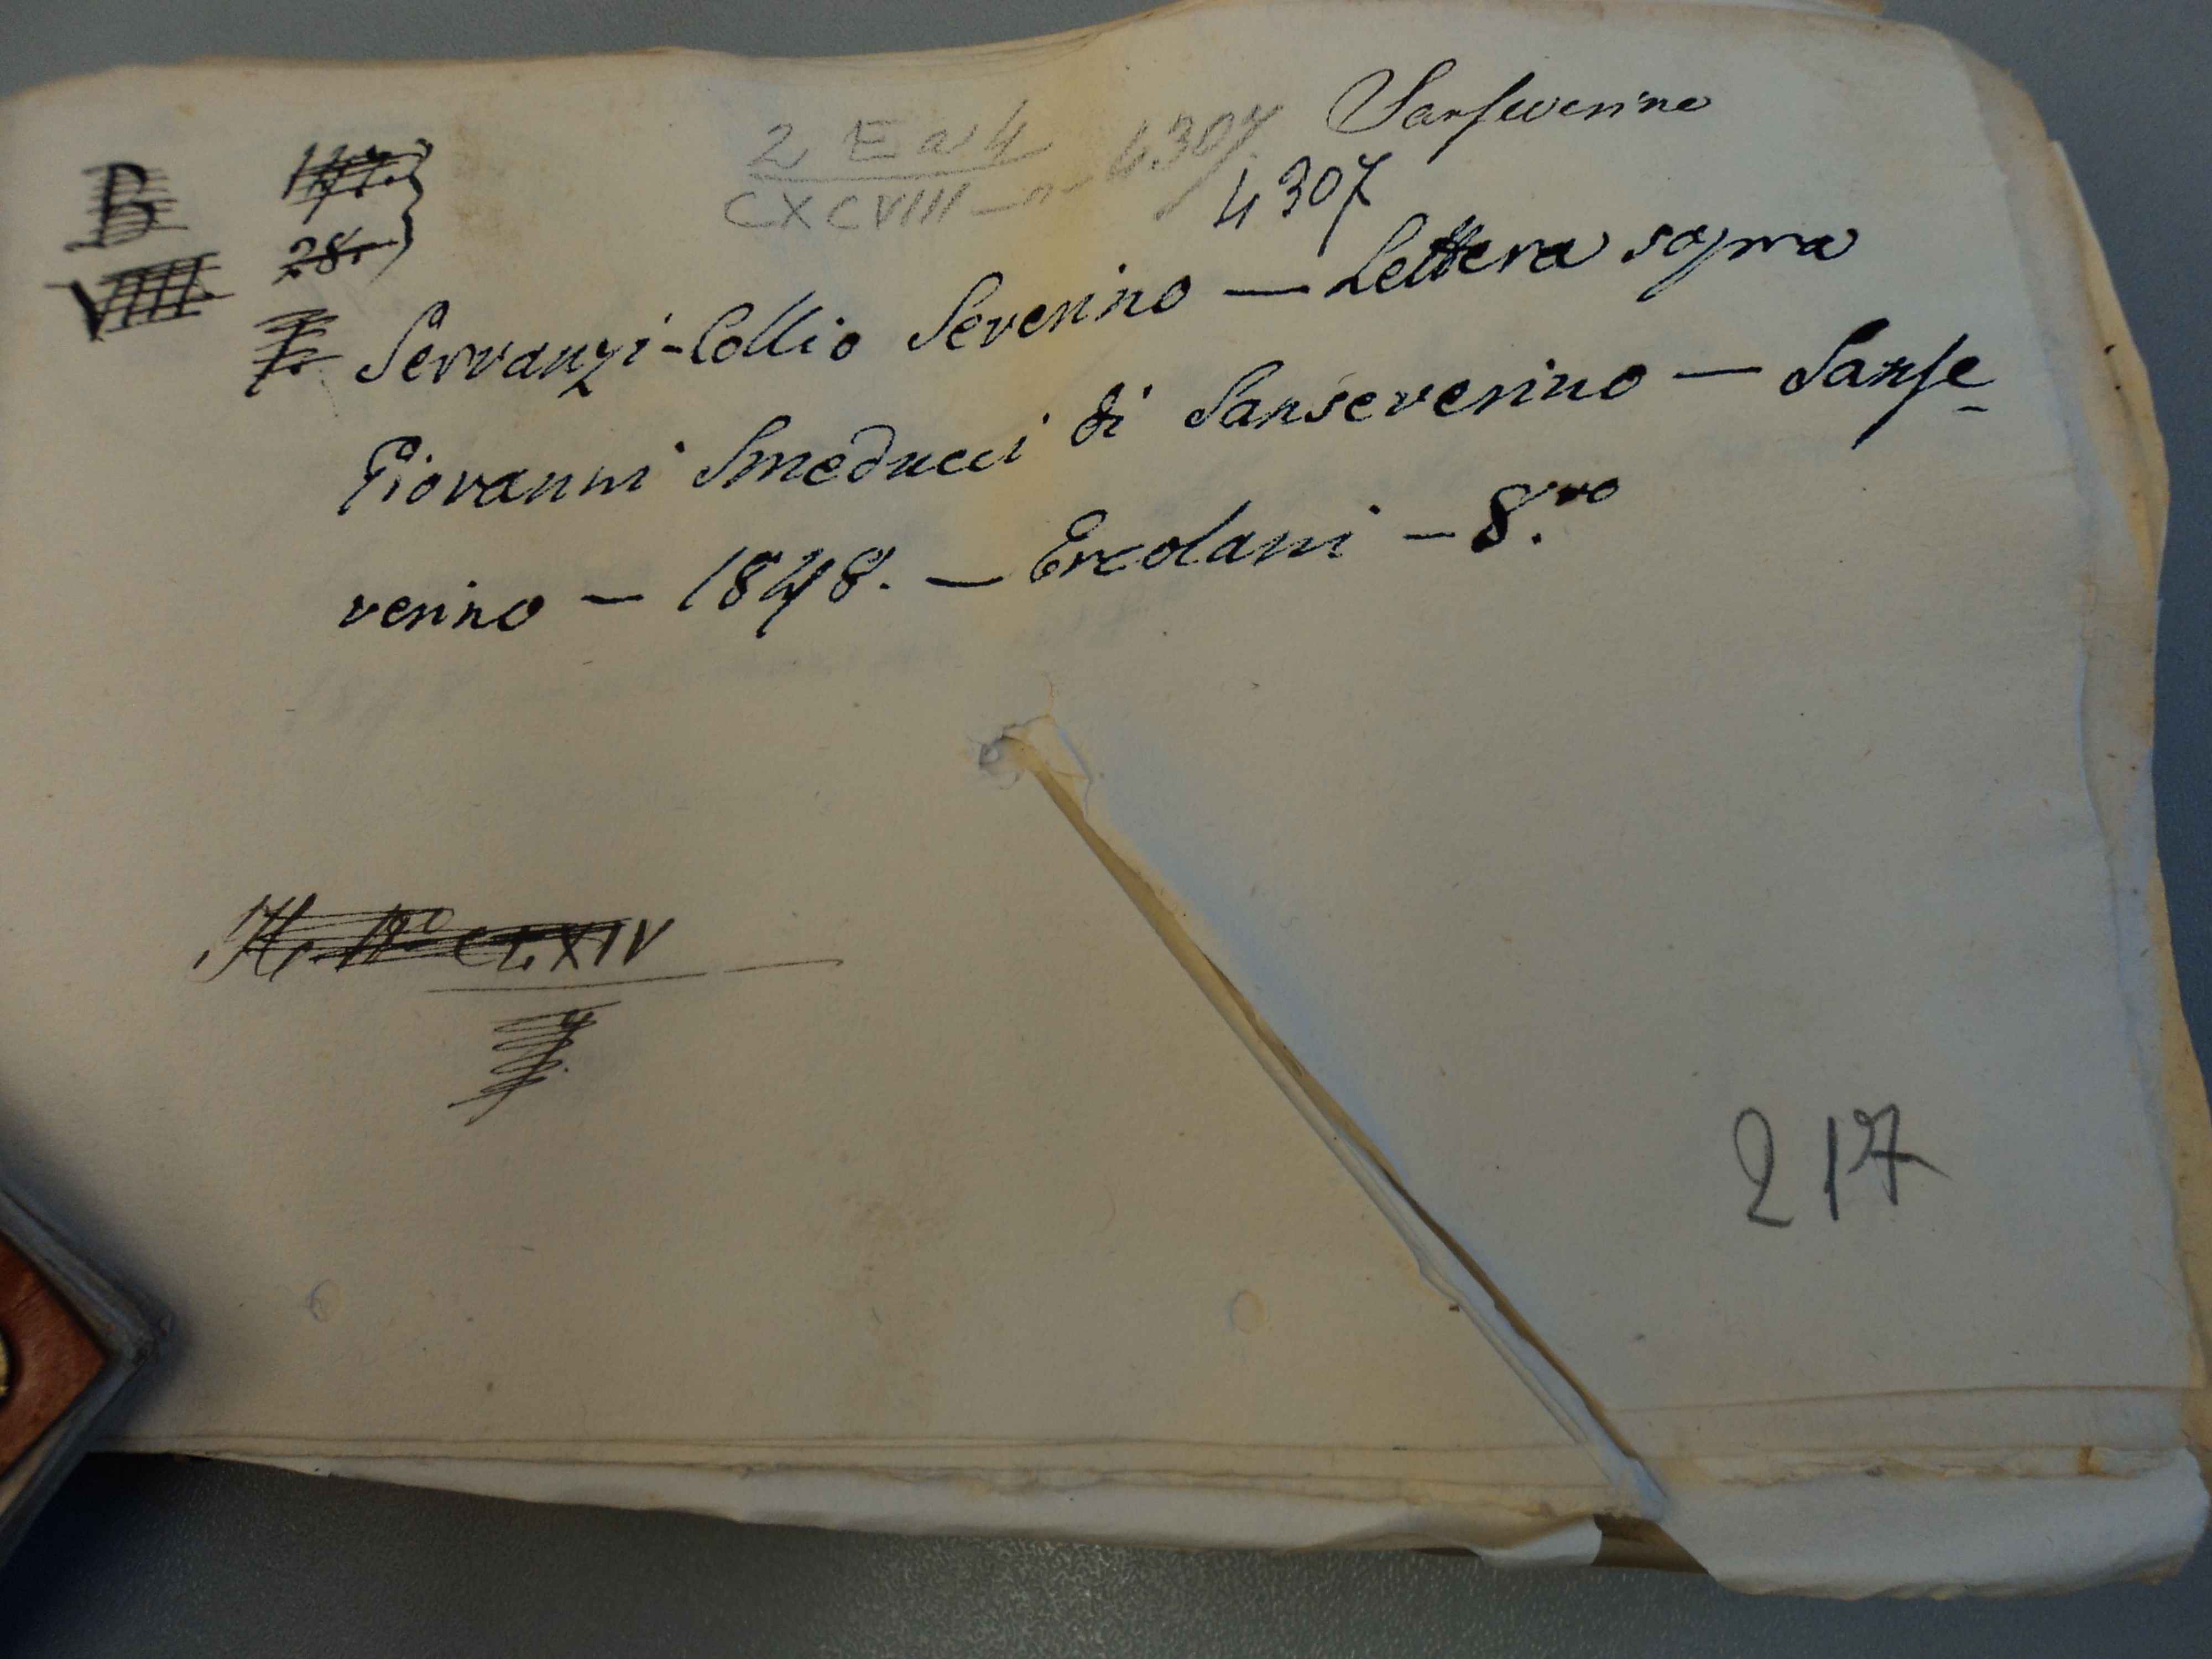 Sanseverino
2 E a 4
CXCVIII - n - 4307
4307
B
VIIII
28.
Servanzi-Collio Severino — Lettera sopra
Giovanni Smeducci di Sanseverino — Sanse-
verino — 1848. — Ercolani — 8.vo
CLXIV
217